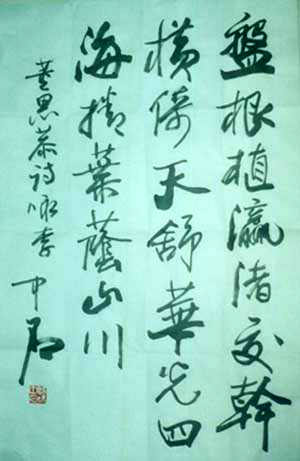 盤根植瀛渚交幹
橫倚天舒華光四
海捲葉蔭山川
董思恭詩詠李 中君